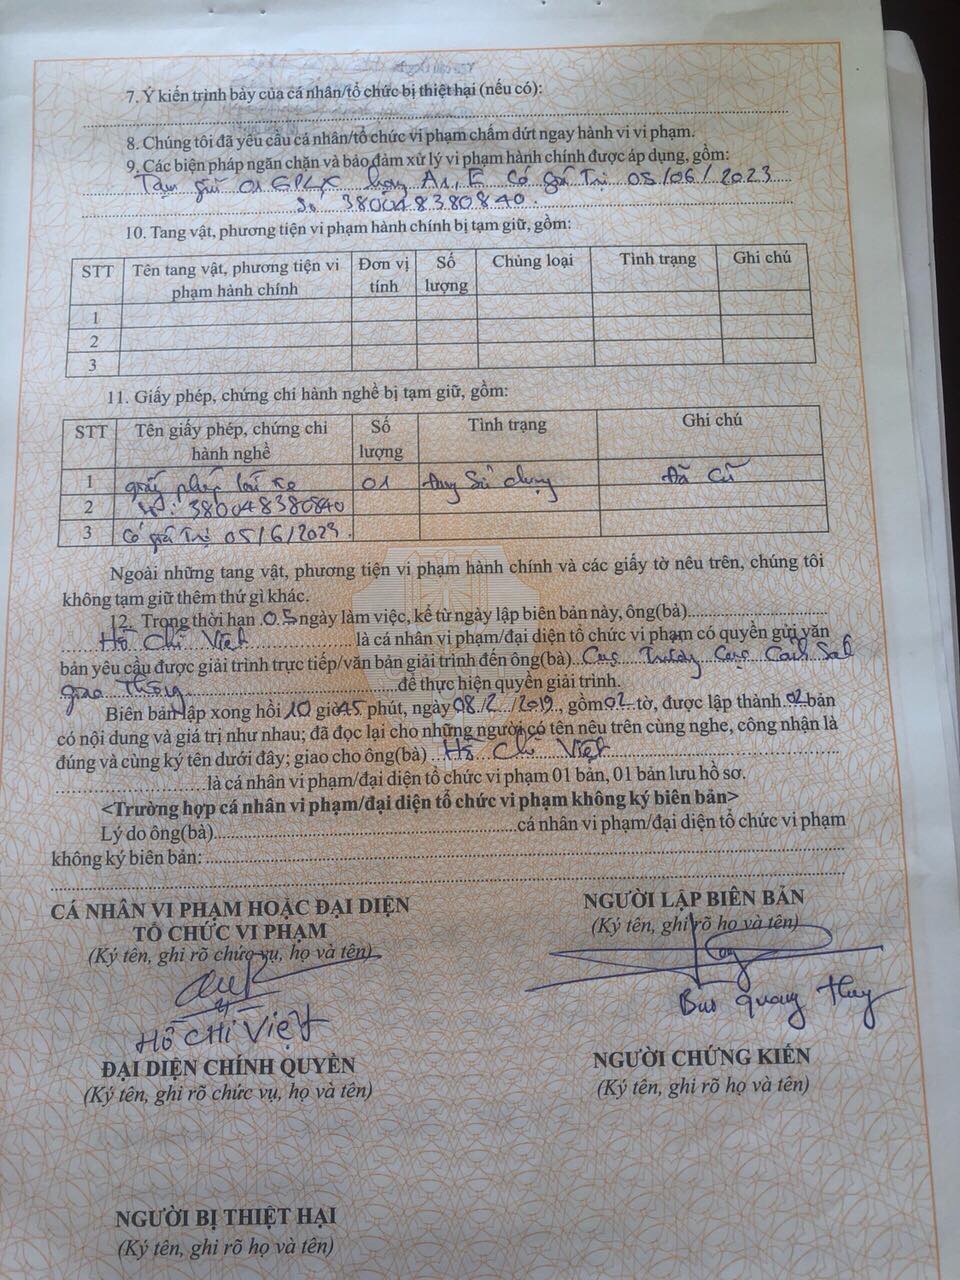 7. Ý kiến trình bày của cá nhân/tổ chức bị thiệt hại (nếu có):
8. Chúng tôi đã yêu cầu cá nhân/tổ chức vi phạm chấm dứt ngay hành vi vi phạm.
9. Các biện pháp ngăn chặn và bảo đảm xử lý vi phạm hành chính được áp dụng, gồm:
Tạm giữ 01 GPLX hạng A1, E Có giá Trị 05/06/2023
Số 380048380840.
10. Tang vật, phương tiện vi phạm hành chính bị tạm giữ, gồm:
STT Tên tang vật, phương tiện vi phạm hành chính Đơn vị tính Số lượng Chủng loại Tình trạng Ghi chú
1
2
3
11. Giấy phép, chứng chỉ hành nghề bị tạm giữ, gồm:
STT Tên giấy phép, chứng chỉ hành nghề Số lượng Tình trạng Ghi chú
1 giấy phép lái xe 01 đang Sử dụng Đã cũ
2 Số: 380048380840
3 Có giá Trị 05/6/2023.
Ngoài những tang vật, phương tiện vi phạm hành chính và các giấy tờ nêu trên, chúng tôi
không tạm giữ thêm thứ gì khác.
12. Trong thời hạn 05 ngày làm việc, kể từ ngày lập biên bản này, ông(bà)
Hồ Chí Việt là cá nhân vi phạm/đại diện tổ chức vi phạm có quyền gửi văn
bản yêu cầu được giải trình trực tiếp/văn bản giải trình đến ông(bà) Cục Trưởng Cục Cảnh Sát
giao Thông để thực hiện quyền giải trình.
Biên bản lập xong hồi 10 giờ 45 phút, ngày 08/2/2019, gồm 02 tờ, được lập thành 02 bản
có nội dung và giá trị như nhau; đã đọc lại cho những người có tên nêu trên cùng nghe, công nhận là
đúng và cùng ký tên dưới đây; giao cho ông(bà) Hồ Chí Việt
là cá nhân vi phạm/đại diện tổ chức vi phạm 01 bản, 01 bản lưu hồ sơ.
<Trường hợp cá nhân vi phạm/đại diện tổ chức vi phạm không ký biên bản>
Lý do ông(bà) cá nhân vi phạm/đại diện tổ chức vi phạm
không ký biên bản:
CÁ NHÂN VI PHẠM HOẶC ĐẠI DIỆN
TỔ CHỨC VI PHẠM
(Ký tên, ghi rõ chức vụ, họ và tên)
HỒ CHÍ VIỆT
NGƯỜI LẬP BIÊN BẢN
(Ký tên, ghi rõ họ và tên)
Bùi Quang Huy
ĐẠI DIỆN CHÍNH QUYỀN
(Ký tên, ghi rõ chức vụ, họ và tên)
NGƯỜI CHỨNG KIẾN
(Ký tên, ghi rõ họ và tên)
NGƯỜI BỊ THIỆT HẠI
(Ký tên, ghi rõ họ và tên)